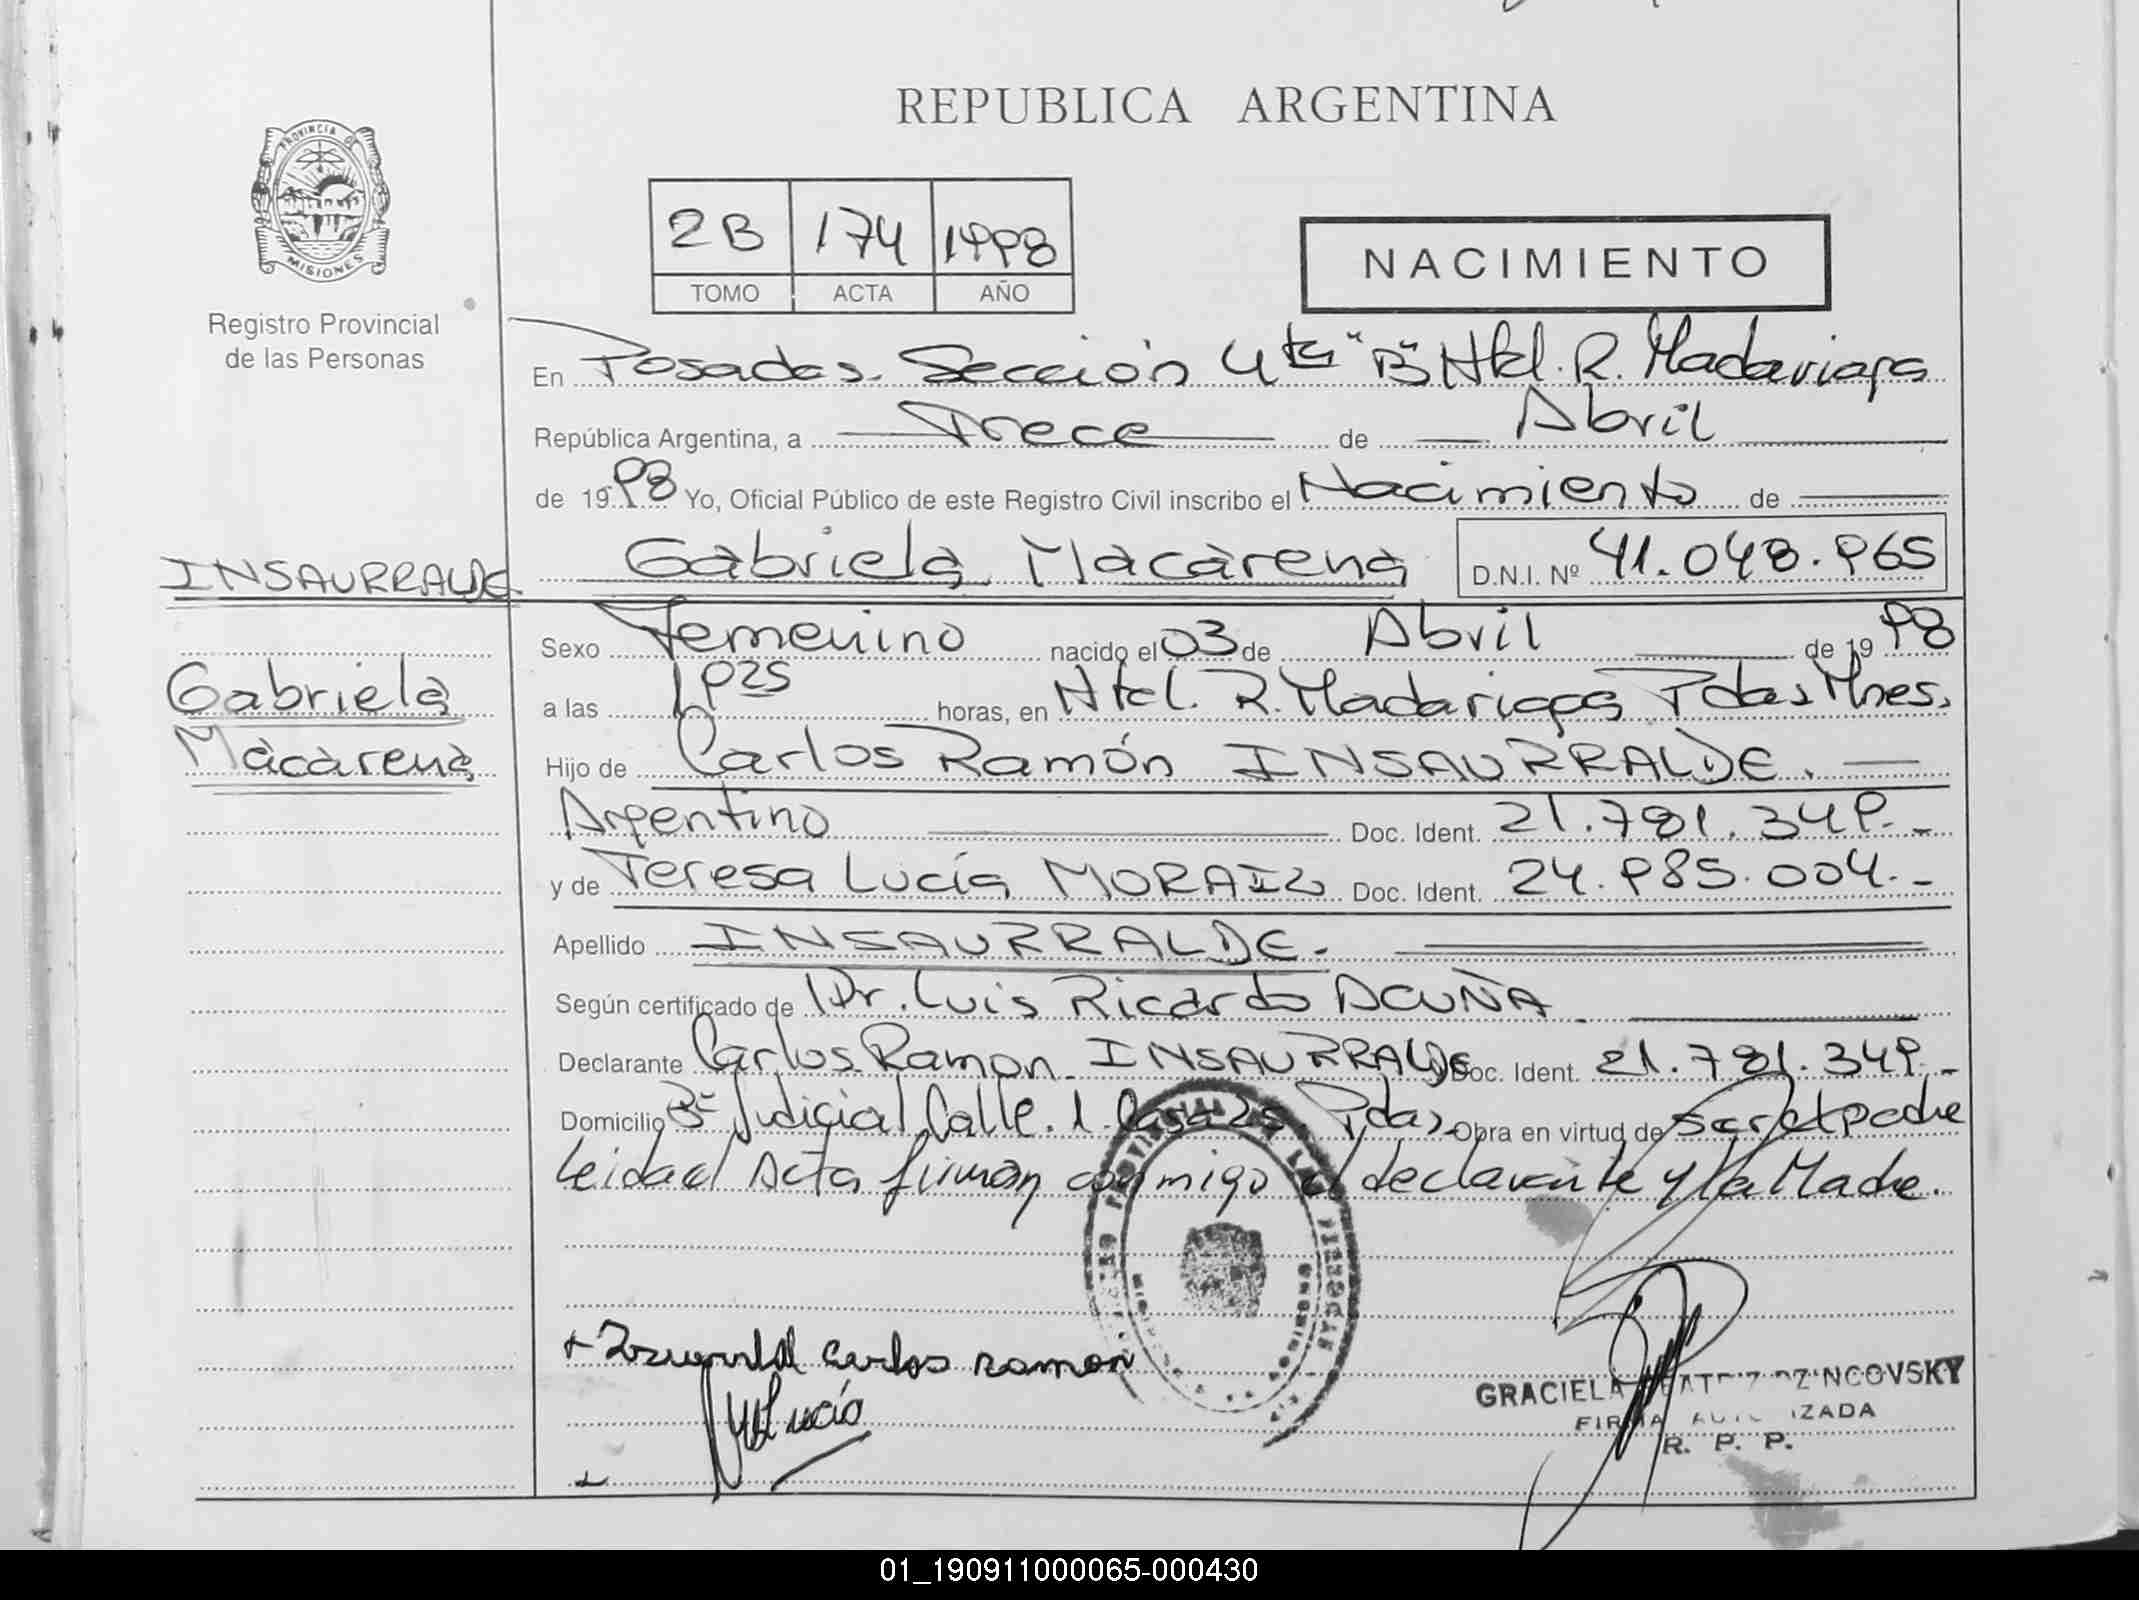 REPUBLICA ARGENTINA
PROVINCIA DE
MISIONES
Registro Provincial
de las Personas
2B 174 1998
TOMO ACTA AÑO
NACIMIENTO
En Posadas. Sección 4ta "B" Htal. R. Madariaga
República Argentina, a Trece de Abril
de 1998 Yo, Oficial Público de este Registro Civil inscribo el Nacimiento de
INSAURRALDE Gabriela Macarena D.N.I. Nº 41.048.965
Sexo Femenino nacido el 03 de Abril de 19 98
Gabriela
Macarena
a las 1925 horas, en Htal. R. Madariaga Pdas Mnes.
Hijo de Carlos Ramón INSAURRALDE.
Argentino Doc. Ident. 21.781.349.-
y de Teresa Lucía MORAIZ Doc. Ident. 24.985.004.-
Apellido INSAURRALDE.
Según certificado de Dr. Luis Ricardo ACUÑA
Declarante Carlos Ramon INSAURRALDE Doc. Ident. 21.781.349.-
Domicilio Bº Judicial Calle. 1 Casa 25. Pdas. Obra en virtud de ser el padre
Leida el Acta firman conmigo el declarante y la Madre.
carlos ramon
Lucia
GRACIELA BEATRIZ DZINCOVSKY
FIRMA AUTORIZADA
R. P. P.
01_190911000065-000430